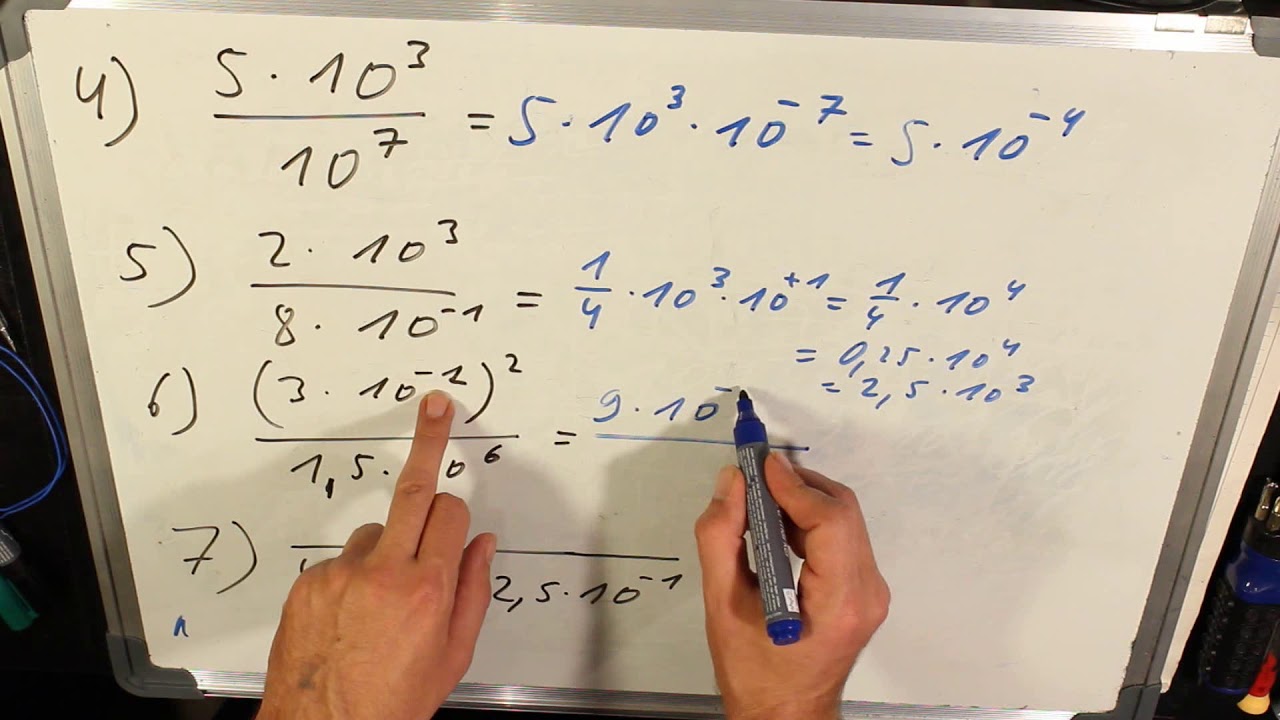 4) 5 · 10³ / 10⁷ = 5 · 10³ · 10⁻⁷ = 5 · 10⁻⁴
5) 2 · 10³ / 8 · 10⁻¹ = 1/4 · 10³ · 10⁺¹ = 1/4 · 10⁴
= 0,25 · 10⁴
= 2,5 · 10³
6) (3 · 10⁻²)² / 1,5 · 0⁶ = 9 · 10⁻
7) 2,5 · 10⁻¹